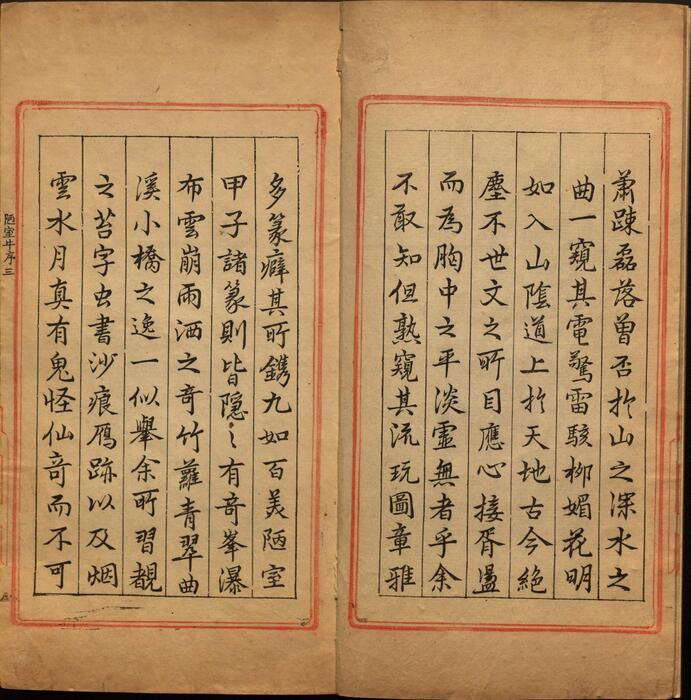 蕭踈磊落曽否扵山之深水之
曲一窺其電驚雷駭柳媚花明
如入山陰道上扵天地古今絶
塵不世文之所目應心接胥盪
而為胸中之平淡虛無者乎余
不敢知但熟窺其流玩圖章雅
多篆癖其所鐫九如百美陋室
甲子諸篆則皆隱〻有竒峯瀑
布雲崩雨洒之竒竹蘿青翠曲
溪小橋之逸一似舉余所習覩
之苔字虫書沙痕鴈跡以及烟
雲水月真有鬼怪仙竒而不可
陋室 序 三